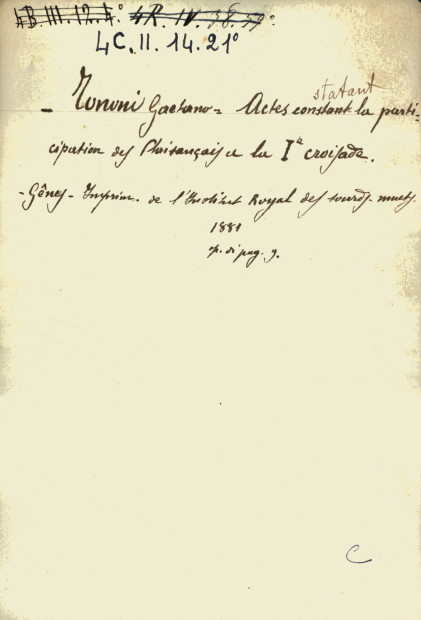 4B.III.12.4° 4R.IV.38.59°
4C.II.14.21°
statant
- Tononi Gaetano = Actes constant la parti-
cipation des Plaisançais a la Iᵉ croisade.
- Gênes - Imprim. de l'Institut Royal des sourds-muets
1881
op. di pag. 9.
C